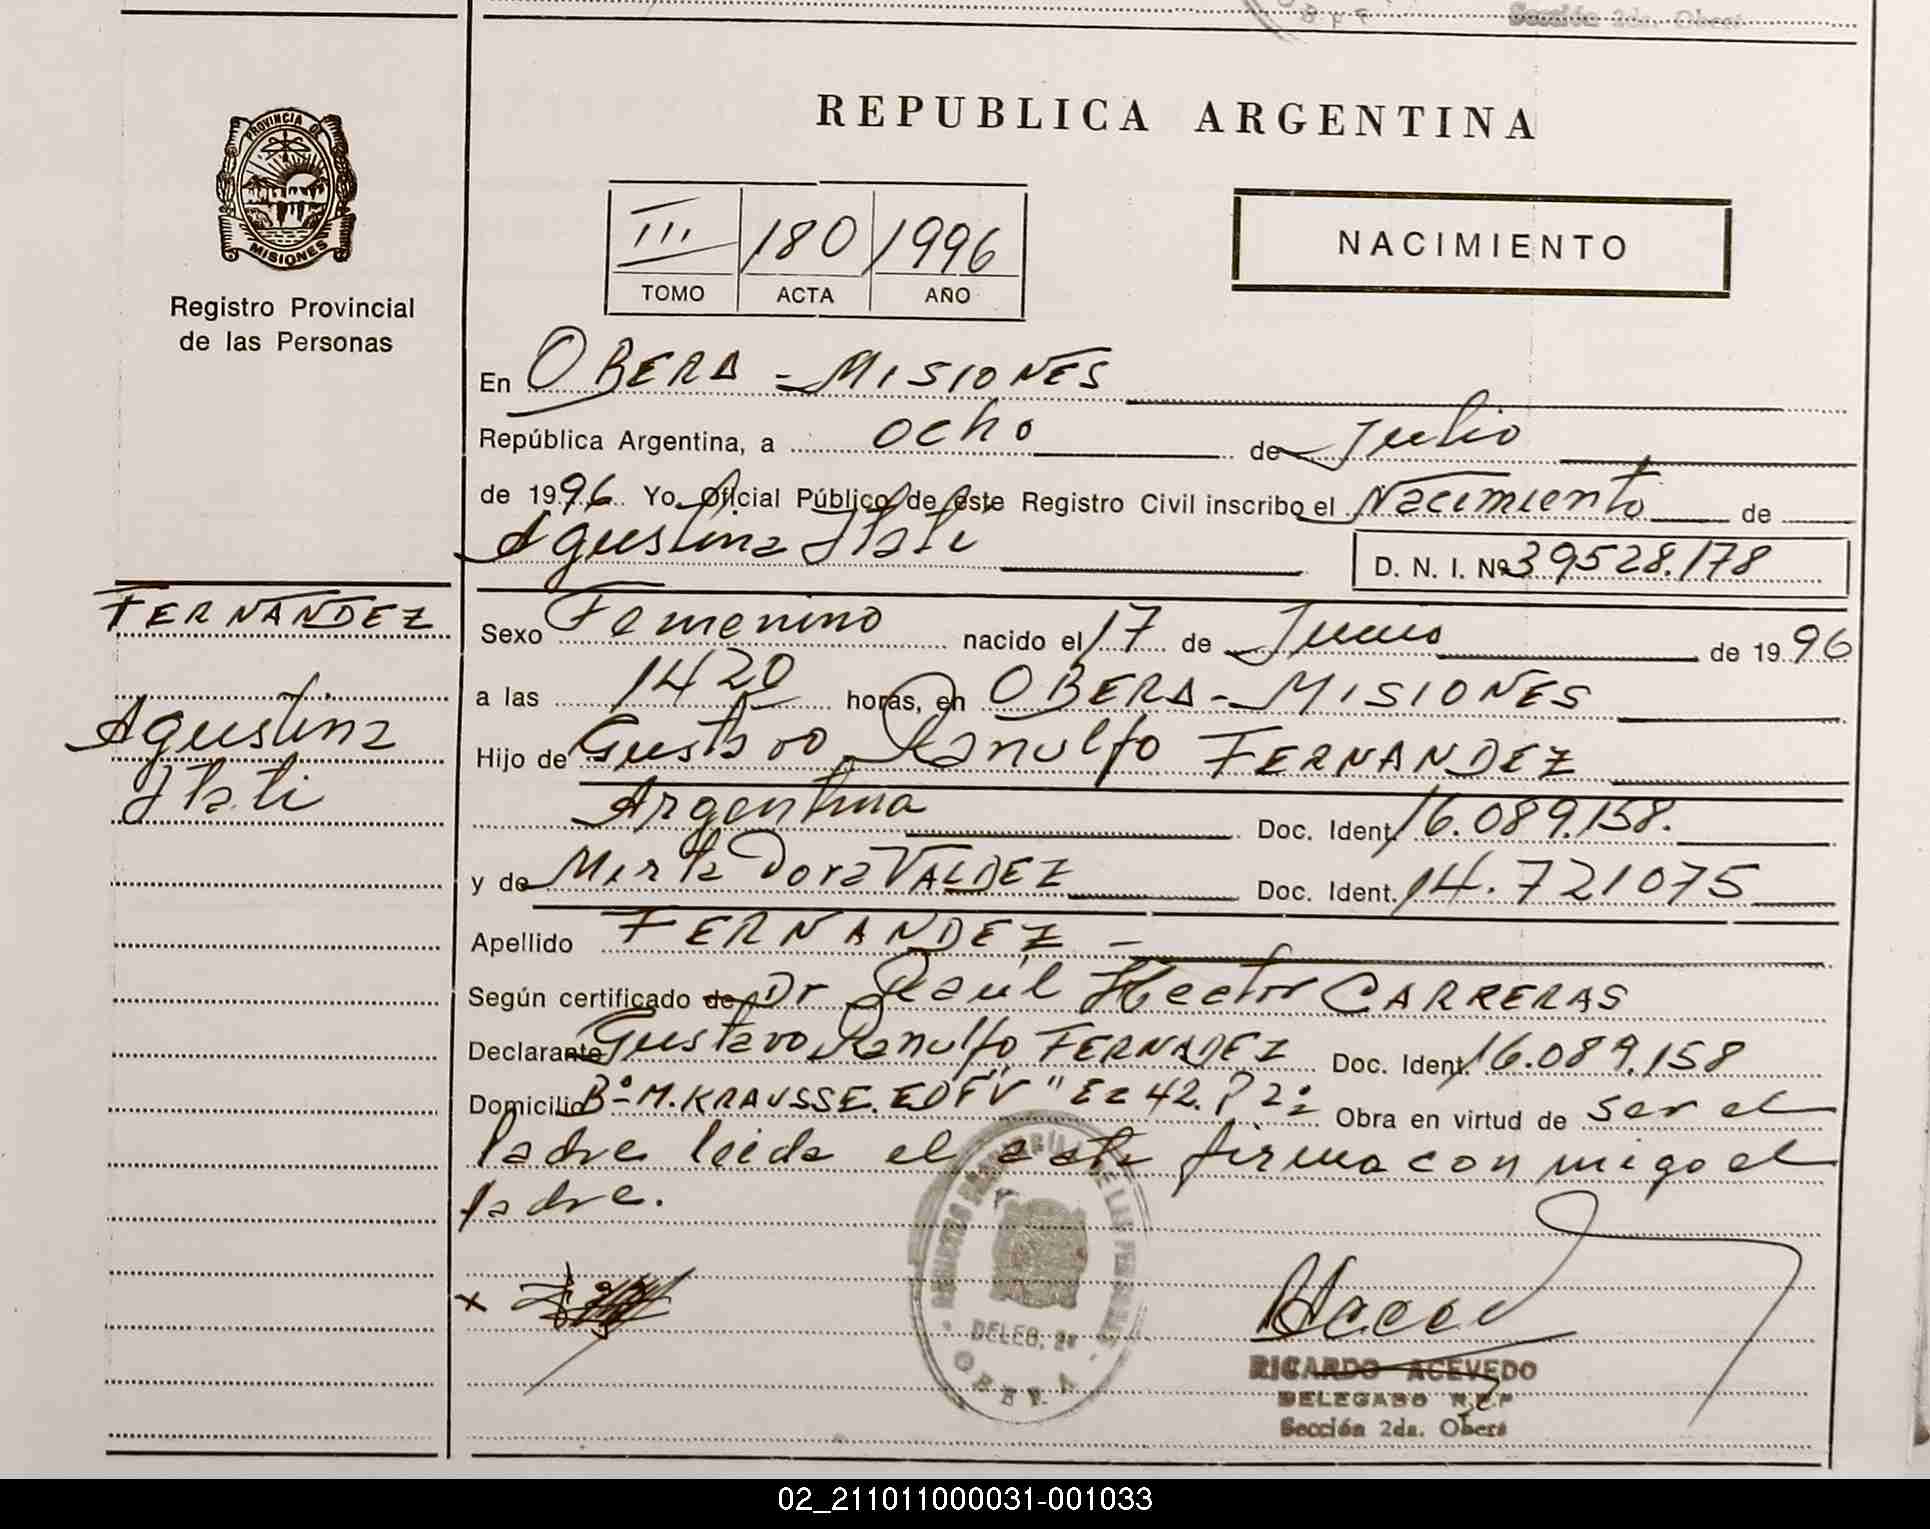 Sección 2da. Oberá
PROVINCIA DE
MISIONES
Registro Provincial
de las Personas
REPUBLICA ARGENTINA
III 180 1996
TOMO ACTA AÑO
NACIMIENTO
En OBERA - MISIONES
República Argentina, a ocho de Julio
de 1996 Yo Oficial Público de este Registro Civil inscribo el Nacimiento de
Agustina Itati D. N. I. Nº 39528.178
FERNANDEZ
Agustina
Itati
Sexo Femenino nacido el 17 de Junio de 1996
a las 14 20 horas, en OBERA - MISIONES
Hijo de Gustavo Ranulfo FERNANDEZ
Argentina Doc. Ident. 16.089.158.
y de Mirta Dora VALDEZ Doc. Ident. 14.721075
Apellido FERNANDEZ -
Según certificado de Dr Raúl Hector CARRERAS
Declarante Gustavo Ranulfo FERNADEZ Doc. Ident. 16.089.158
Domicilio Bº M. KRAUSSE. EDF "V" Ec 42. P 2º Obra en virtud de ser el
Padre leida el acta firma conmigo el
Padre.
x
DELEG. 2ª
OBERA
RICARDO ACEVEDO
DELEGADO R.P.P
Sección 2da. Oberá
02_211011000031-001033